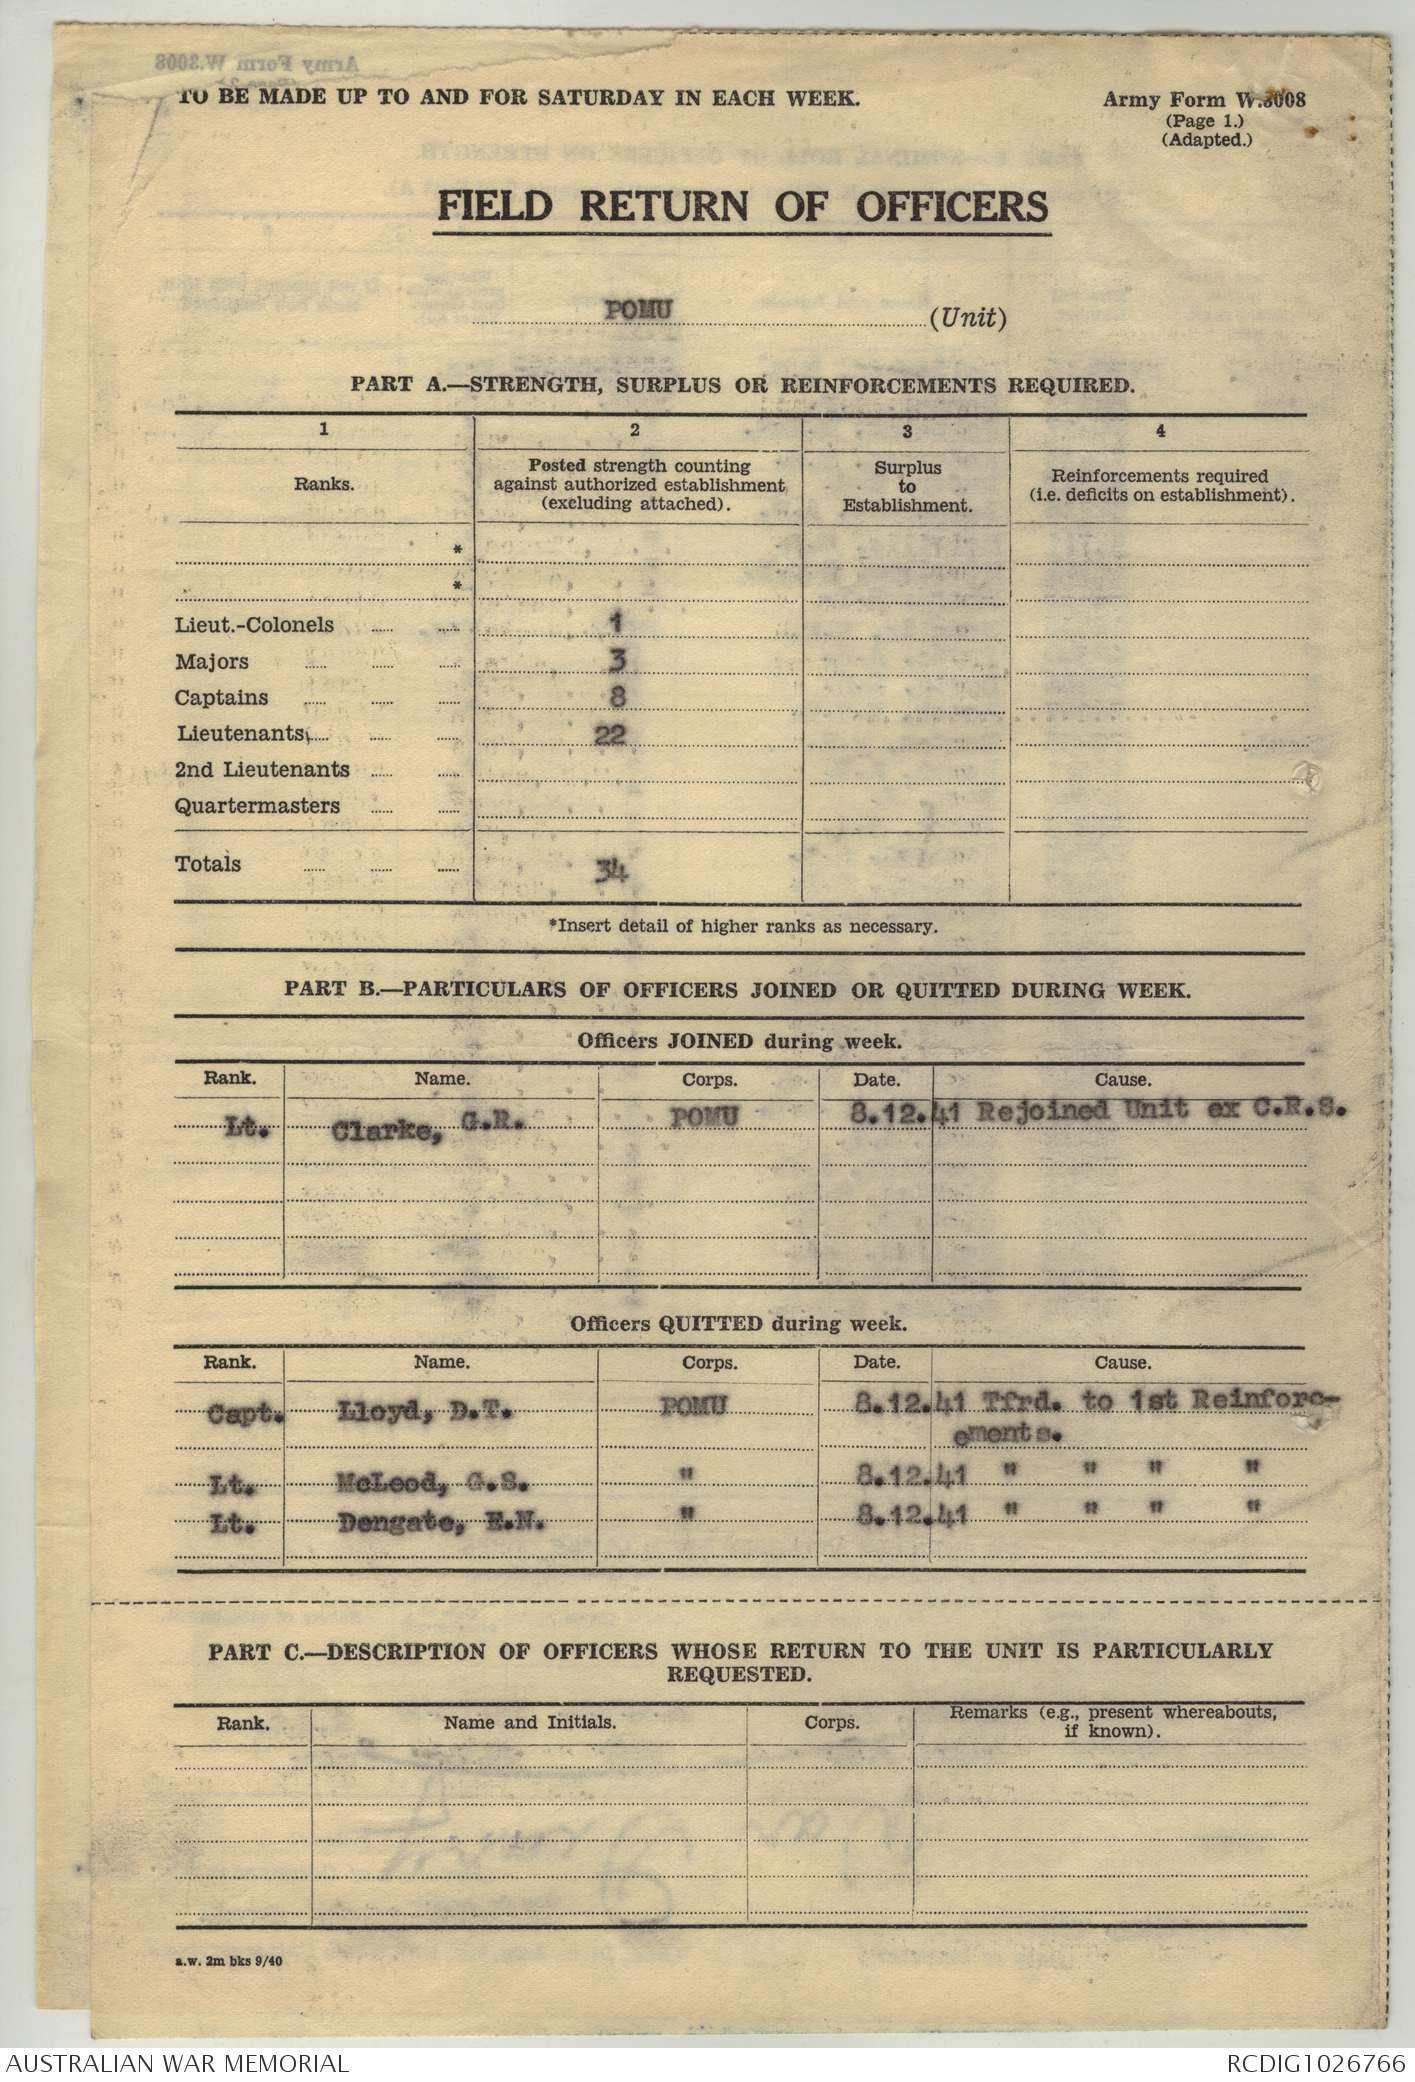 TO BE MADE UP TO AND FOR SATURDAY IN EACH WEEK.
Army Form W.3008
(Page 1.)
(Adapted.)
FIELD RETURN OF OFFICERS
POMU (Unit)
PART A.—STRENGTH, SURPLUS OR REINFORCEMENTS REQUIRED.
1 2 3 4
Ranks. Posted strength counting against authorized establishment (excluding attached). Surplus to Establishment. Reinforcements required (i.e. deficits on establishment).
*
*
Lieut.-Colonels 1
Majors 3
Captains 8
Lieutenants 22
2nd Lieutenants
Quartermasters
Totals 34
*Insert detail of higher ranks as necessary.
PART B.—PARTICULARS OF OFFICERS JOINED OR QUITTED DURING WEEK.
Officers JOINED during week.
Rank. Name. Corps. Date. Cause.
Lt. Clarke, G.R. POMU 8.12.41 Rejoined Unit ex C.R.S.
Officers QUITTED during week.
Rank. Name. Corps. Date. Cause.
Capt. Lloyd, D.T. POMU 8.12.41 Tfrd. to 1st Reinforc-
ements.
Lt. McLeod, G.S. " 8.12.41 " " " "
Lt. Dengate, E.N. " 8.12.41 " " " "
PART C.—DESCRIPTION OF OFFICERS WHOSE RETURN TO THE UNIT IS PARTICULARLY
REQUESTED.
Rank. Name and Initials. Corps. Remarks (e.g., present whereabouts, if known).
a.w. 2m bks 9/40
AUSTRALIAN WAR MEMORIAL
RCDIG1026766